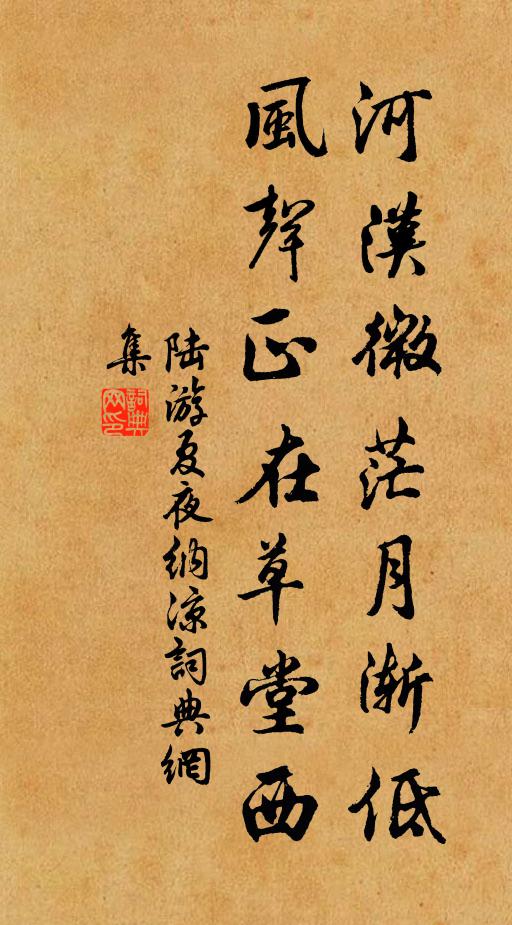 河漢微茫月漸低
風聲正在草堂西
陆游夏夜納涼詞典網
集
詞典網印